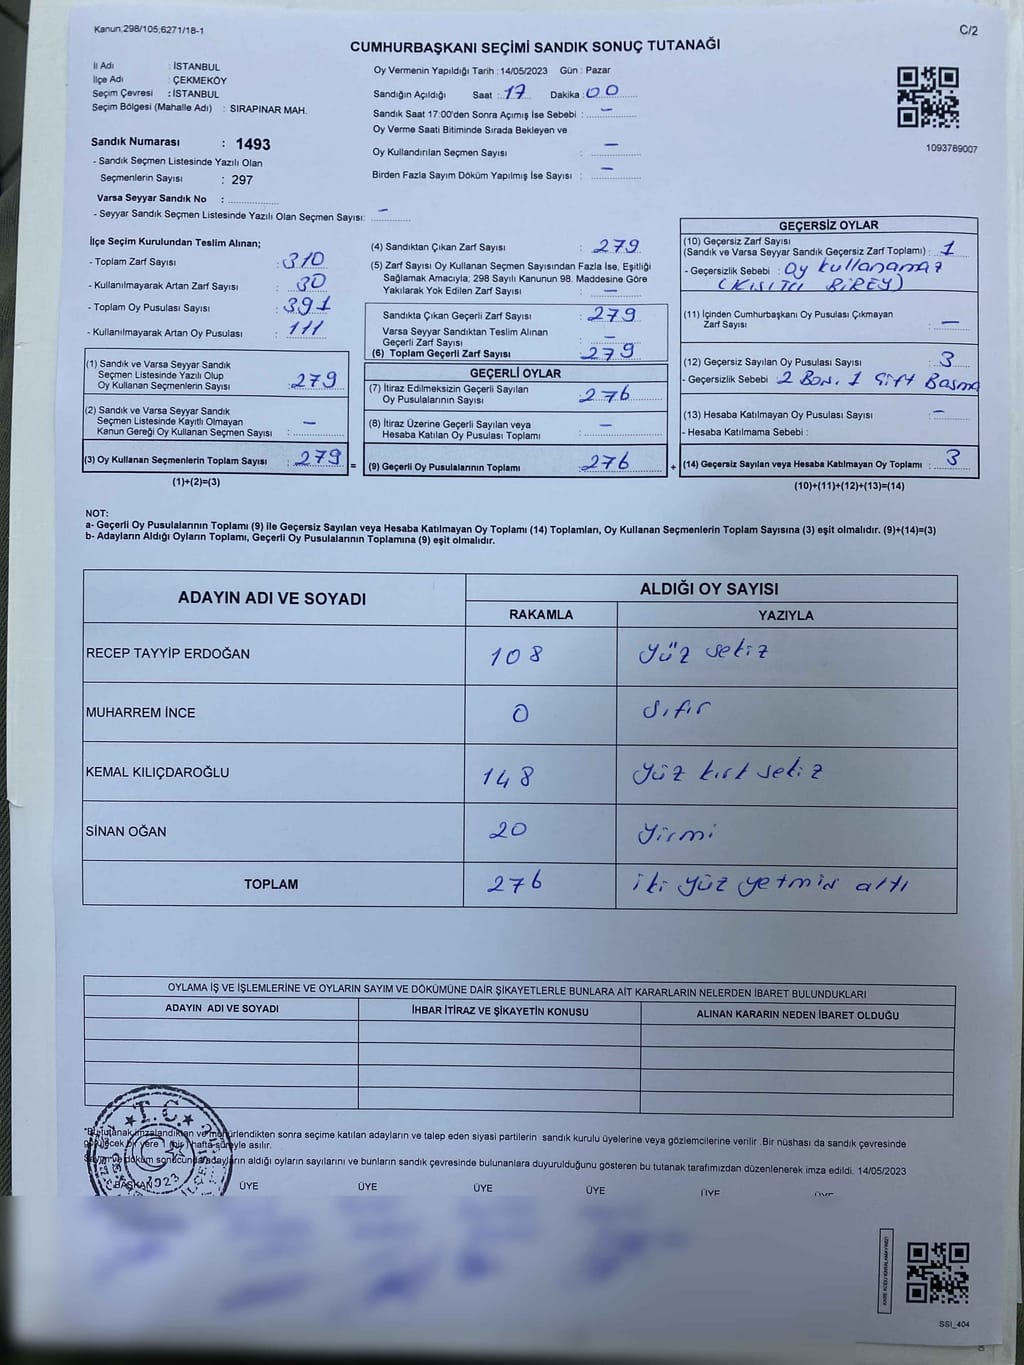 Kanun;298/105;6271/18-1
C/2
CUMHURBAŞKANI SEÇİMİ SANDIK SONUÇ TUTANAĞI
İl Adı : İSTANBUL
İlçe Adı : ÇEKMEKÖY
Seçim Çevresi : İSTANBUL
Seçim Bölgesi (Mahalle Adı) : SIRAPINAR MAH.
Sandık Numarası : 1493
- Sandık Seçmen Listesinde Yazılı Olan
Seçmenlerin Sayısı : 297
Varsa Seyyar Sandık No :
- Seyyar Sandık Seçmen Listesinde Yazılı Olan Seçmen Sayısı: -
Oy Vermenin Yapıldığı Tarih : 14/05/2023 Gün : Pazar
Sandığın Açıldığı Saat : 17 Dakika : 00
Sandık Saat 17:00'den Sonra Açımış İse Sebebi : -
Oy Verme Saati Bitiminde Sırada Bekleyen ve
Oy Kullandırılan Seçmen Sayısı : -
Birden Fazla Sayım Döküm Yapılmış İse Sayısı : -
1093789007
İlçe Seçim Kurulundan Teslim Alınan;
- Toplam Zarf Sayısı : 310
- Kullanılmayarak Artan Zarf Sayısı : 30
- Toplam Oy Pusulası Sayısı : 391
- Kullanılmayarak Artan Oy Pusulası : 111
(1) Sandık ve Varsa Seyyar Sandık
Seçmen Listesinde Yazılı Olup
Oy Kullanan Seçmenlerin Sayısı : 279
(2) Sandık ve Varsa Seyyar Sandık
Seçmen Listesinde Kayıtlı Olmayan
Kanun Gereği Oy Kullanan Seçmen Sayısı : -
(3) Oy Kullanan Seçmenlerin Toplam Sayısı : 279 =
(1)+(2)=(3)
(4) Sandıktan Çıkan Zarf Sayısı : 279
(5) Zarf Sayısı Oy Kullanan Seçmen Sayısından Fazla İse, Eşitliği
Sağlamak Amacıyla; 298 Sayılı Kanunun 98. Maddesine Göre
Yakılarak Yok Edilen Zarf Sayısı : -
Sandıkta Çıkan Geçerli Zarf Sayısı : 279
Varsa Seyyar Sandıktan Teslim Alınan
Geçerli Zarf Sayısı : -
(6) Toplam Geçerli Zarf Sayısı : 279
GEÇERLİ OYLAR
(7) İtiraz Edilmeksizin Geçerli Sayılan
Oy Pusulalarının Sayısı : 276
(8) İtiraz Üzerine Geçerli Sayılan veya
Hesaba Katılan Oy Pusulası Toplamı : -
(9) Geçerli Oy Pusulalarının Toplamı : 276 +
GEÇERSİZ OYLAR
(10) Geçersiz Zarf Sayısı
(Sandık ve Varsa Seyyar Sandık Geçersiz Zarf Toplamı) : 1
- Geçersizlik Sebebi : Oy kullanamaz
(KISITLI BİREY)
(11) İçinden Cumhurbaşkanı Oy Pusulası Çıkmayan
Zarf Sayısı : -
(12) Geçersiz Sayılan Oy Pusulası Sayısı : 3
- Geçersizlik Sebebi : 2 Boş. 1 Çift Basma
(13) Hesaba Katılmayan Oy Pusulası Sayısı : -
- Hesaba Katılmama Sebebi :
(14) Geçersiz Sayılan veya Hesaba Katılmayan Oy Toplamı : 3
(10)+(11)+(12)+(13)=(14)
NOT:
a- Geçerli Oy Pusulalarının Toplamı (9) ile Geçersiz Sayılan veya Hesaba Katılmayan Oy Toplamı (14) Toplamları, Oy Kullanan Seçmenlerin Toplam Sayısına (3) eşit olmalıdır. (9)+(14)=(3)
b- Adayların Aldığı Oyların Toplamı, Geçerli Oy Pusulalarının Toplamına (9) eşit olmalıdır.
ADAYIN ADI VE SOYADI
ALDIĞI OY SAYISI
RAKAMLA YAZIYLA
RECEP TAYYİP ERDOĞAN 108 yüz sekiz
MUHARREM İNCE 0 sıfır
KEMAL KILIÇDAROĞLU 148 yüz kırk sekiz
SİNAN OĞAN 20 yirmi
TOPLAM 276 iki yüz yetmiş altı
OYLAMA İŞ VE İŞLEMLERİNE VE OYLARIN SAYIM VE DÖKÜMÜNE DAİR ŞİKAYETLERLE BUNLARA AİT KARARLARIN NELERDEN İBARET BULUNDUKLARI
ADAYIN ADI VE SOYADI İHBAR İTİRAZ VE ŞİKAYETİN KONUSU ALINAN KARARIN NEDEN İBARET OLDUĞU
T.C.
*Bu tutanak imzalandıktan ve mühürlendikten sonra seçime katılan adayların ve talep eden siyasi partilerin sandık kurulu üyelerine veya gözlemcilerine verilir .Bir nüshası da sandık çevresinde
görülecek bir yere 1 (bir) hafta süreyle asılır.
Sayım ve döküm sonucunda adayların aldığı oyların sayılarını ve bunların sandık çevresinde bulunanlara duyurulduğunu gösteren bu tutanak tarafımızdan düzenlenerek imza edildi. 14/05/2023
BAŞKAN ÜYE ÜYE ÜYE ÜYE ÜYE ÜYE
2023
SSI_404